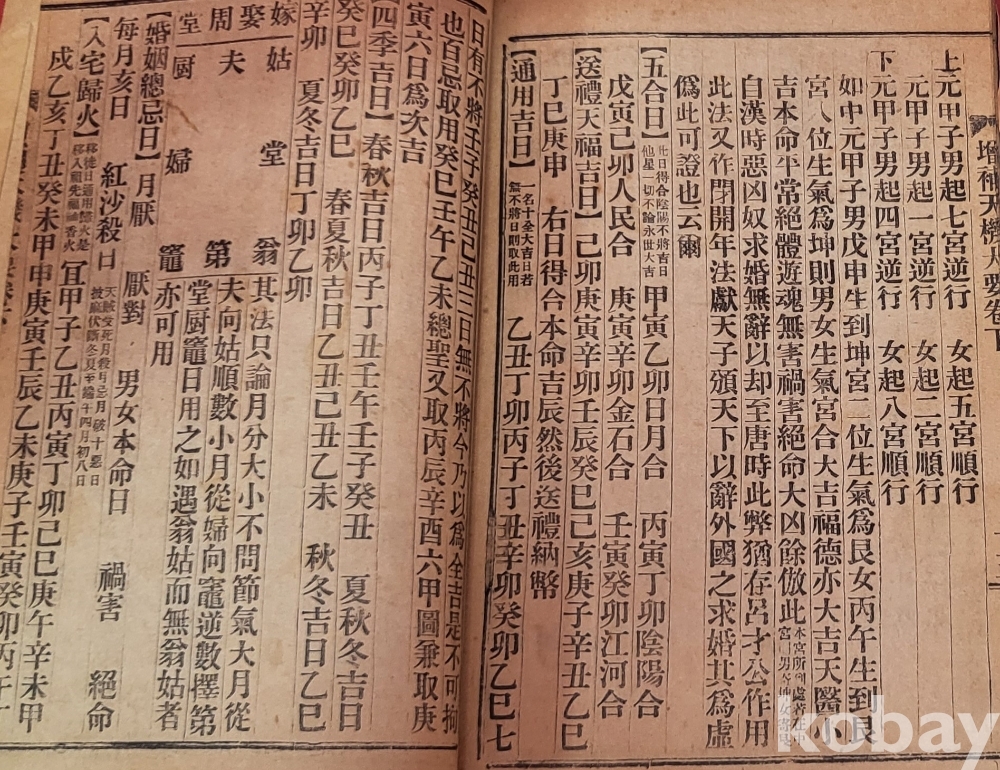 增補天機大要卷下
上元甲子男起七宮逆行 女起五宮順行
元甲子男起一宮逆行 女起二宮順行
下元甲子男起四宮逆行 女起八宮順行
如中元甲子男戊申生到坤宮二位生氣爲艮女丙午生到艮
宮八位生氣爲坤則男女生氣宮合大吉福德亦大吉天醫小
吉本命平常絕體遊魂無害禍害絕命大凶餘倣此
自漢時惡凶奴求婚無辭以却至唐時此弊猶存呂才公作用
此法又作閉開年法獻天子頒天下以辭外國之求婚其爲虛
僞此可證也云爾
【五合日】此日得合陰陽不將吉日他星一切不論永世大吉 甲寅乙卯日月合 丙寅丁卯陰陽合
戊寅己卯人民合 庚寅辛卯金石合 壬寅癸卯江河合
【送禮天福吉日】己卯庚寅辛卯壬辰癸巳己亥庚子辛丑乙巳
丁巳庚申 右日得合本命吉辰然後送禮納幣
【通用吉日】一名十全大吉日若無不將日則取此用 乙丑丁卯丙子丁丑辛卯癸卯乙巳七
日有不將壬子癸丑己丑三日無不將今乃以爲全吉是不可拘
也百忌取用癸巳壬午乙未總聖又取丙辰辛酉六甲圖兼取庚
寅六日爲次吉
【四季吉日】春秋吉日丙子丁丑壬午壬子癸丑 夏秋冬吉日
癸巳癸卯乙巳 春夏秋吉日乙丑己丑乙未 秋冬吉日乙巳
辛卯 夏冬吉日丁卯乙卯
嫁娶周堂
姑 堂 翁
夫 第
厨 婦 竈
其法只論月分大小不問節氣大月從
夫向姑順數小月從婦向竈逆數擇第
堂厨竈日用之如遇翁姑而無翁姑者
亦可用
【婚姻總忌日】月厭 厭對 男女本命日 禍害 絕命
每月亥日 紅沙殺日
【入宅歸火】宜甲子乙丑丙寅丁卯己巳庚午辛未甲
戌乙亥丁丑癸未甲申庚寅壬辰乙未庚子壬寅癸卯丙午
kobay